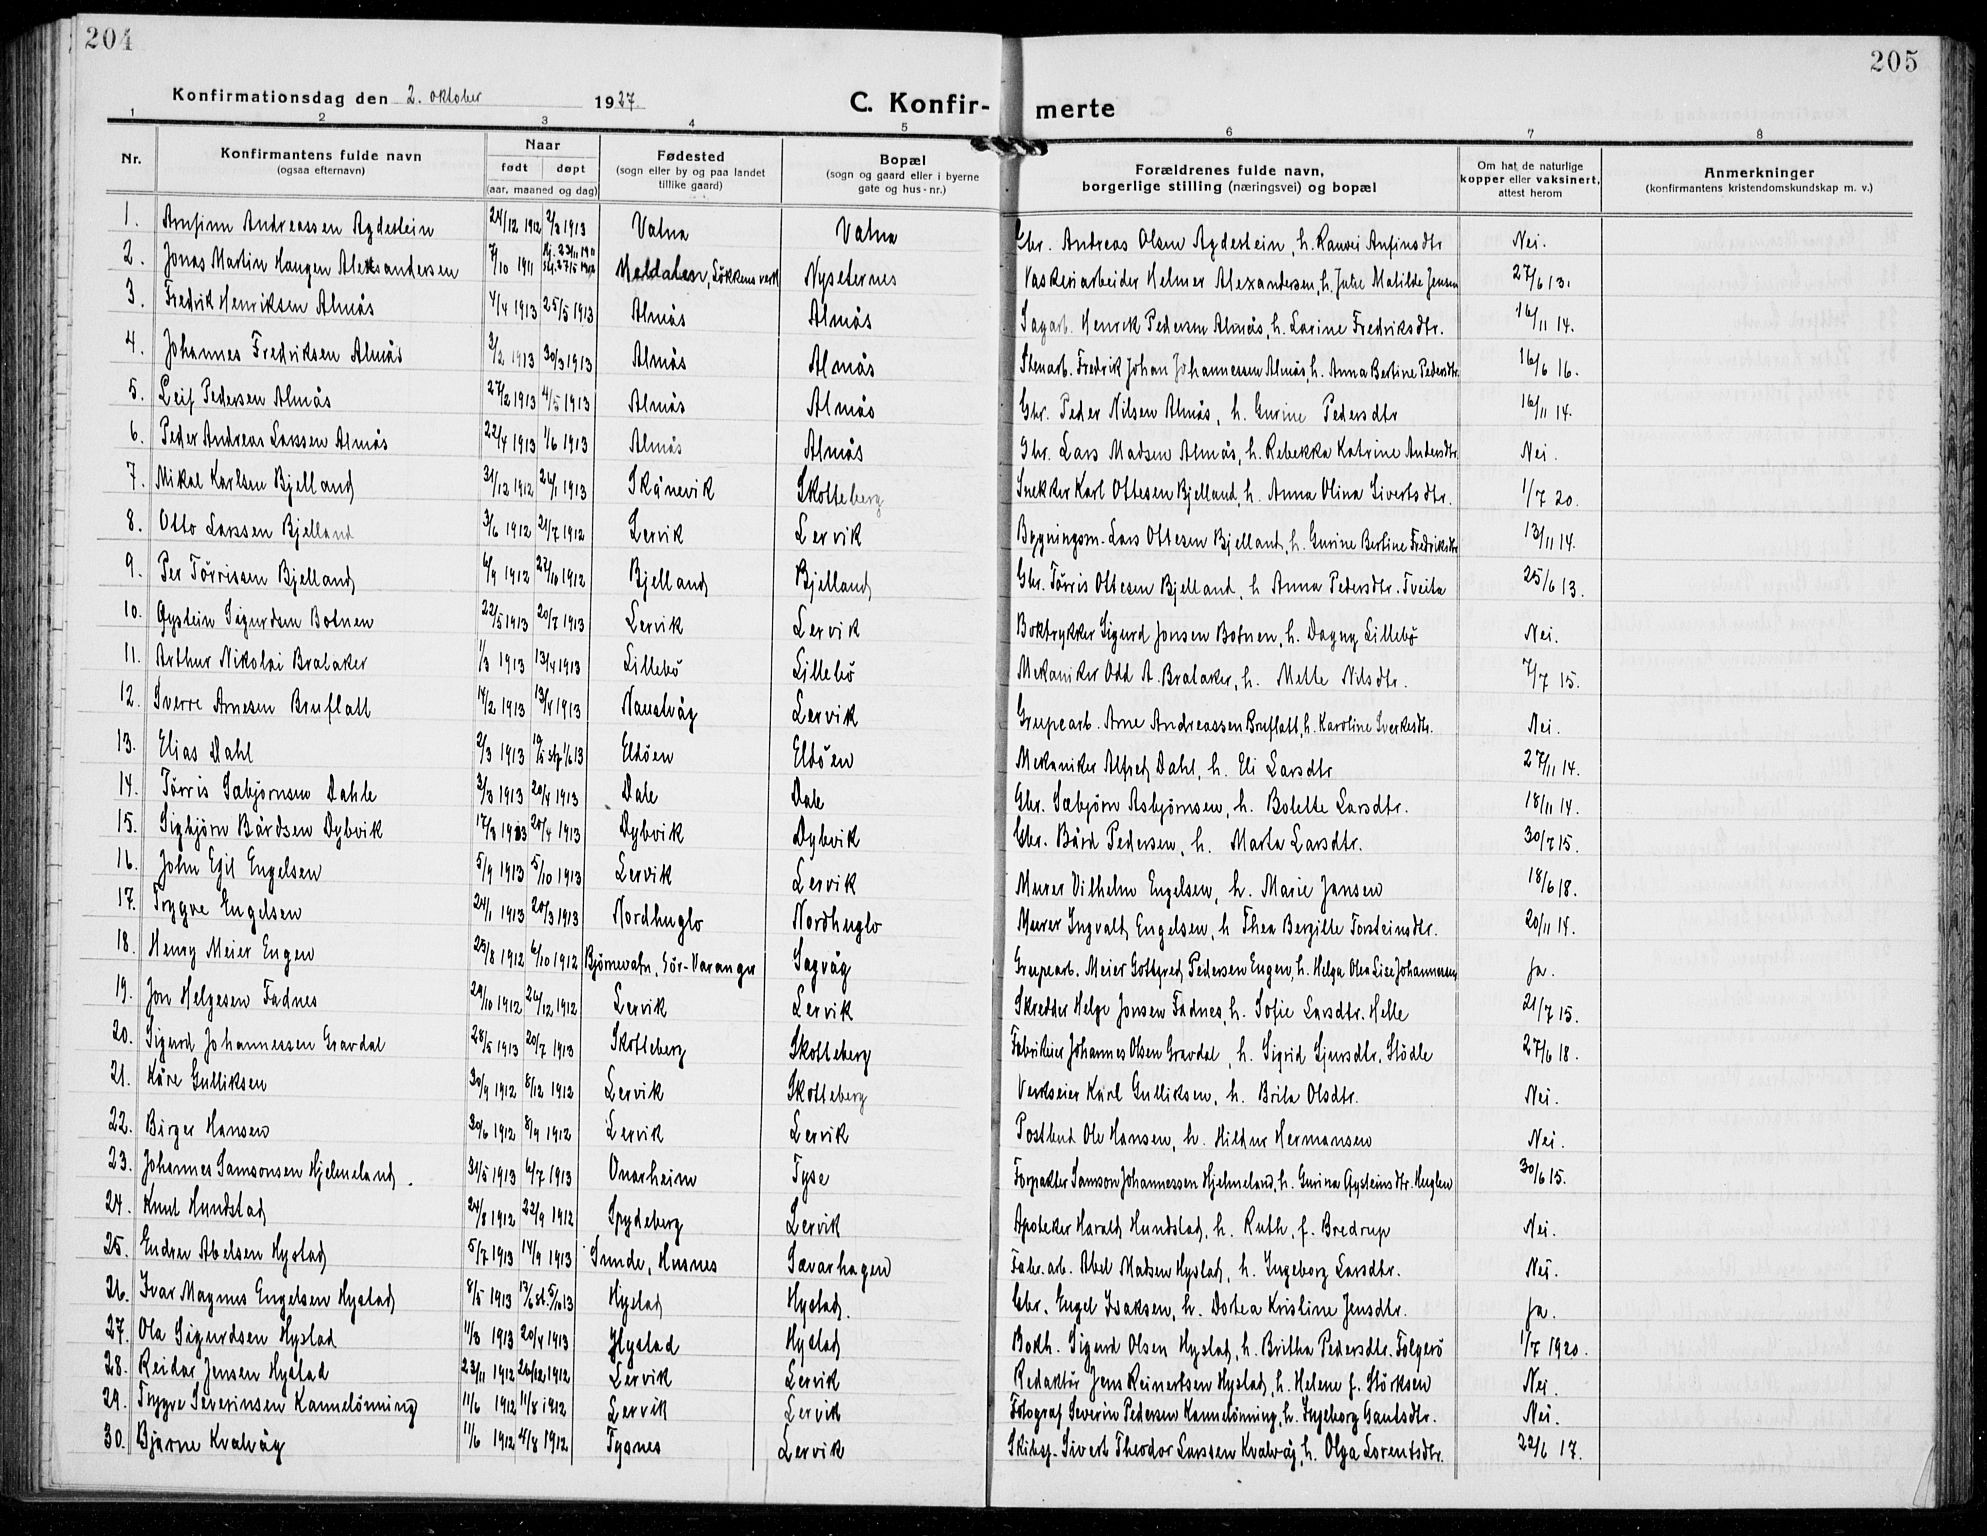 204
205
Konfirmationsdag den 2. oktober 1927
C. Konfir- merte
1 2 3 4 5 6 7 8
Nr.
Konfirmantens fulde navn
(ogsaa efternavn)
Naar
født døpt
(aar, maaned og dag)
Fødested
(sogn eller by og paa landet
tillike gaard)
Bopæl
(sogn og gaard eller i byerne
gate og hus-nr.)
Forældrenes fulde navn,
borgerlige stilling (næringsvei) og bopæl
Om hat de naturlige
kopper eller vaksinert,
attest herom
Anmerkninger
(konfirmantens kristendomskundskap m. v.)
1. Arnfinn Andreassen Agdestein 24/12 1912 2/3 1913 Vatna Vatna Gbr. Andreas Olsen Agdestein, h. Ranvei Anfinsdtr Nei.
2. Jonas Martin Haugen Aleksandersen 7/10 1911 Meldalen, Løkkens verk Nyseternes Vaskeriarbeider Helmer Alexandersen, h. Julie Matilde Jensen 27/6 13.
3. Fredrik Henriksen Almås 4/4 1913 25/5 1913 Almås Almås Sagarb. Henrik Pedersen Almås, h. Larine Fredriksdtr. 16/11 14.
4. Johannes Fredriksen Almås 3/2 1913 30/3 1913 Almås Almås Stenarb. Fredrik Johan Johannessen Almås, h. Anna Bertine Pedersdtr. 16/6 16.
5. Leif Pedersen Almås 27/2 1913 4/5 1913 Almås Almås Gbr. Peder Nilsen Almås, h. Gurine Pedersdtr 16/11 14.
6. Peder Andreas Larssen Almås 22/4 1913 1/6 1913 Almås Almås Gbr. Lars Madsen Almås, h. Rebekka Katrine Andersdtr. Nei.
7. Mikal Karlsen Bjelland 31/12 1912 26/1 1913 Skånevik Skotteberg Snekker Karl Ottesen Bjelland, h. Anna Olina Sivertsdtr. 1/7 20.
8. Otto Larssen Bjelland 3/6 1912 21/7 1912 Lervik Lervik Bygningsm. Lars Ottesen Bjelland, h. Gurine Bertine Fredriksdtr 13/11 14.
9. Per Tørrissen Bjelland 6/9 1912 27/10 1912 Bjelland Bjelland Gbr. Tørris Ottesen Bjelland, h Anna Pedersdtr. Tveita 25/6 13.
10. Øystein Sigurdsen Botnen 22/5 1913 20/7 1913 Lervik Lervik Boktrykker Sigurd Jonsen Botnen, h. Dagny Lillebø Nei.
11. Arthur Nikolai Brataker 1/3 1913 13/4 1913 Lillebø Lillebø Mekaniker Odd A. Brataker, h. Mette Nilsdtr. 7/7 15.
12. Sverre Arnesen Bruflatt 14/2 1913 13/4 1913 Naustvåg Lervik Grupearb. Arne Andreassen Bruflatt, h. Karoline Sverkesdtr. Nei.
13. Elias Dahl 2/3 1913 Eldøen Eldøen Mekaniker Alfred Dahl, h. Eli Larsdtr 27/11 14.
14. Tørris Sæbjørnsen Dahle 3/3 1913 20/4 1913 Dale Dale Gbr. Sæbjørn Asbjørnsen, h. Botette Larsdtr. 18/11 14.
15. Sigbjørn Bårdsen Dybvik 17/3 1913 20/4 1913 Dybvik Dybvik Gbr. Bård Pedersen, h. Marta Larsdtr. 30/7 15.
16. John Egil Engelsen 5/9 1913 5/10 1913 Lervik Lervik Murer Vilhelm Engelsen, h. Marie Jansen 18/6 18.
17. Trygve Engelsen 24/1 1913 20/3 1913 Nordhuglo Nordhuglo Murer Ingvald Engelsen, h Thea Bergitte Torsteinsdtr. 20/11 14.
18. Henry Meier Engen 25/8 1912 6/10 1912 Bjørnevatn, Sør-Varanger Sagvåg Grupearb. Meier Gottfred Pedersen Engen, h. Helga Olea Lise Johannessen Ja.
19. Jon Helgesen Fadnes 29/10 1912 26/12 1912 Lervik Lervik Skredder Helge Jonsen Fadnes, h. Sofie Larsdtr. Helle 21/7 15.
20. Sigurd Johannessen Gravdal 28/5 1913 20/7 1913 Skotteberg Skotteberg Fabrikeier Johannes Olsen Gravdal, h. Sigrid Sjursdtr. Stødle 27/6 18.
21. Kåre Gulliksen 30/9 1912 8/12 1912 Lervik Skotteberg Verkseier Karl Gulliksen, h. Brita Olsdtr. Nei.
22. Birger Hansen 30/6 1912 8/9 1912 Lervik Lervik Postbud Ole Hansen, h. Hildur Hermansen Nei.
23. Johannes Samsonsen Hjelmeland. 31/5 1913 6/7 1913 Onarheim Tyse Forpakter Samson Johannessen Hjelmeland, h. Gurina Øysteinsdtr. Huglen 30/6 15.
24. Knut Hundstad 24/8 1912 22/9 1912 Spydeberg Lervik Apoteker Harald Hundstad, h. Ruth, f. Bredrup Nei.
25. Endrer Abelsen Hystad 5/7 1913 14/9 1913 Sunde, Husnes Sævarhagen Fabr.arb. Abel Madsen Hystad, h. Ingeborg Larsdtr. Nei.
26. Ivar Magnus Engelsen Hystad 8/5 1913 Hystad Hystad. Gbr. Engel Isaksen, h. Dortea Kristine Jensdtr. Ja.
27. Ola Sigurdsen Hystad 11/3 1913 20/4 1913 Hystad Hystad Bokh. Sigurd Olsen Hystad, h. Britha Pedersdtr. Folgerø 1/7 1920.
28. Reidar Jensen Hystad 23/11 1912 26/12 1912 Lervik Lervik Redaktør Jens Reinertsen Hystad, h. Helene f. Størksen Nei.
29. Trygve Severinsen Kannelønning 11/6 1912 11/8 1912 Lervik Lervik Fotograf Severin Pedersen Kannelønning, h. Ingeborg Gautsdtr. Nei.
30. Bjarne Kvalvåg 11/6 1912 4/8 1912 Tysnes Lervik Skibsf. Sivert Theodor Larssen Kvalvåg, h. Olga Lorentsdtr. 22/6 17.